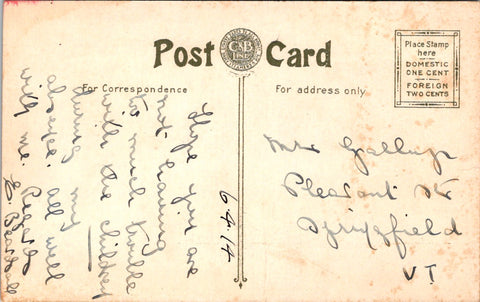 Post Card
Place Stamp
here
DOMESTIC
ONE CENT
FOREIGN
TWO CENTS
For Correspondence
For address only
Hope you are
not having
too much trouble
with the children
during my
absence. all well
with me. Regards
E. Beardsall
6-4-14
Mrs Gallup
Pleasant St
Springfield
VT